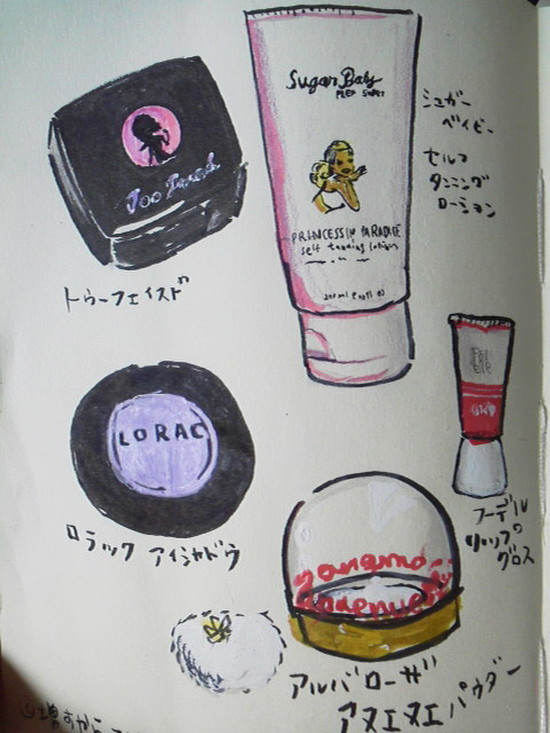 Sugar Baby
シュガー
ベイビー
セルフ
タンニング
ローション
PRINCESS IN PARADISE
self tanning lotion
Too Faced
トゥーフェイスド
LORAC
ロラック アイシャドウ
フーデル
リップの
グロス
アルバローザ
アヌエヌエパウダー